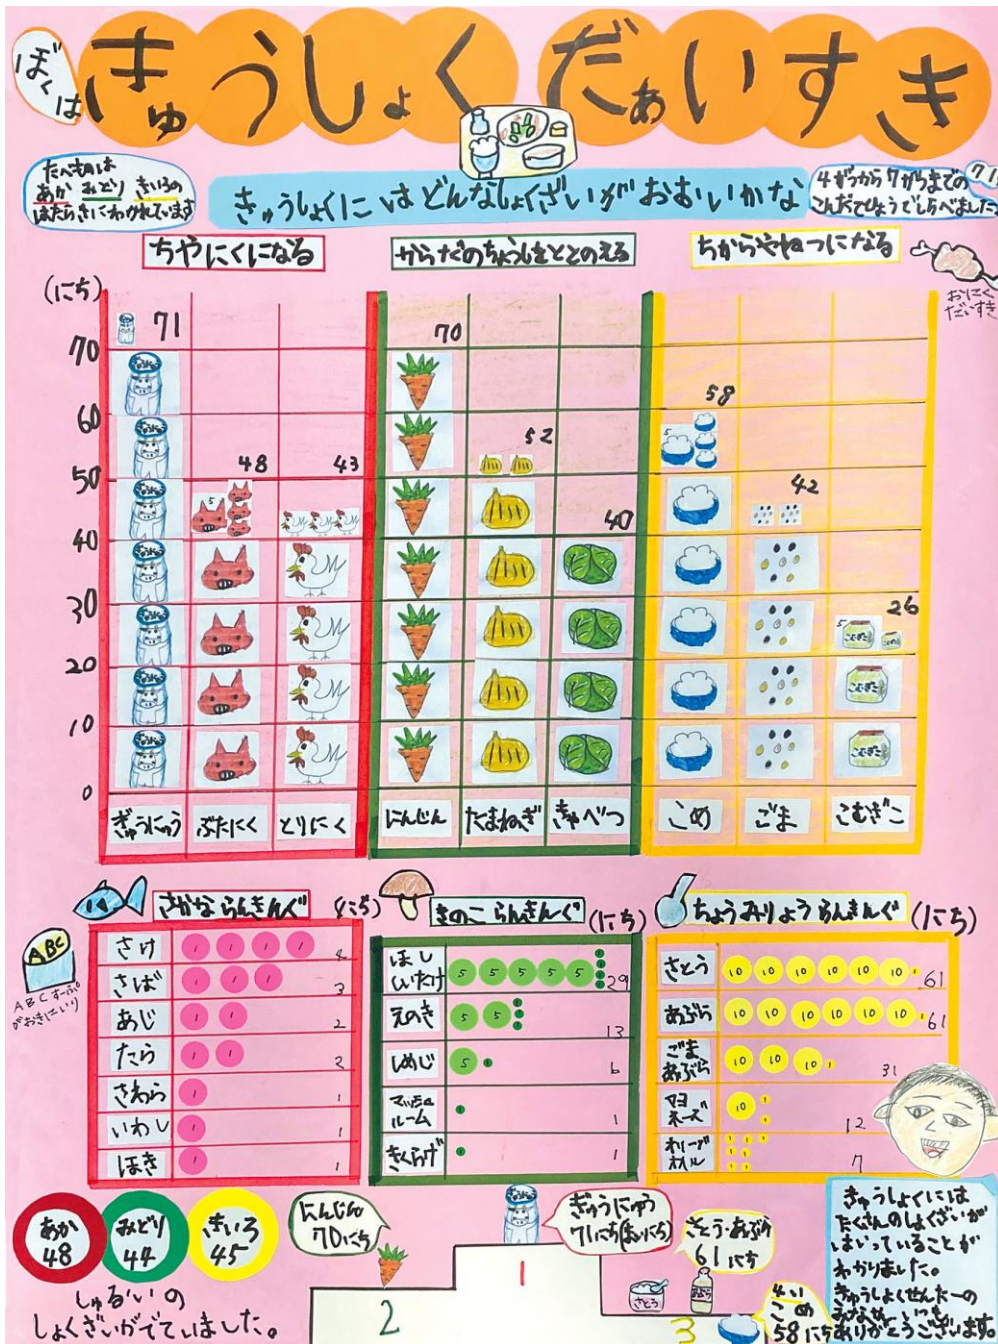 ぼくは
きゅうしょく だぁいすき
たべものは
あか みどり きいろの
はたらきにわかれています
きゅうしょくにはどんなしょくざいがおおいかな
4がつから7がつまでの 71
こんだてひょうでしらべました
ちやにくになる
からだのちょうしをととのえる
ちからやねつになる
おにく
だいすき
(にち)
71
70
48
43
52
40
58
42
26
70
60
50
40
30
20
10
0
5
5
5
ぎゅうにゅう
ぶたにく
とりにく
にんじん
たまねぎ
きゃべつ
こめ
ごま
こむぎこ
さかならんきんぐ (にち)
さけ 1 1 1 1 4
さば 1 1 1 3
あじ 1 1 2
たら 1 1 2
さわら 1 1
いわし 1 1
ほき 1 1
ABC
ABCすーぷ
がおきにいり
きのこらんきんぐ (にち)
ほし
しいたけ 5 5 5 5 5 1 1 1 1 29
えのき 5 5 1 1 1 13
しめじ 5 1 6
マッシュ
ルーム 1 1
きくらげ 1 1
ちょうみりょうらんきんぐ (にち)
さとう 10 10 10 10 10 10 1 61
あぶら 10 10 10 10 10 10 1 61
ごま
あぶら 10 10 10 1 31
マヨ
ネーズ 10 1 1 12
オリーブ
オイル 1 1 1 1 1 1 1 7
あか
48
みどり
44
きいろ
45
しゅるいの
しょくざいがでていました。
にんじん
70にち
ぎゅうにゅう
71にち(まいにち)
さとう・あぶら
61にち
さとう
あぶら
4い
こめ
58にち
1
2
3
きゅうしょくには
たくさんのしょくざいが
はいっていることが
わかりました。
きゅうしょくせんたーの
みなさん、いつも
ありがとうございます。